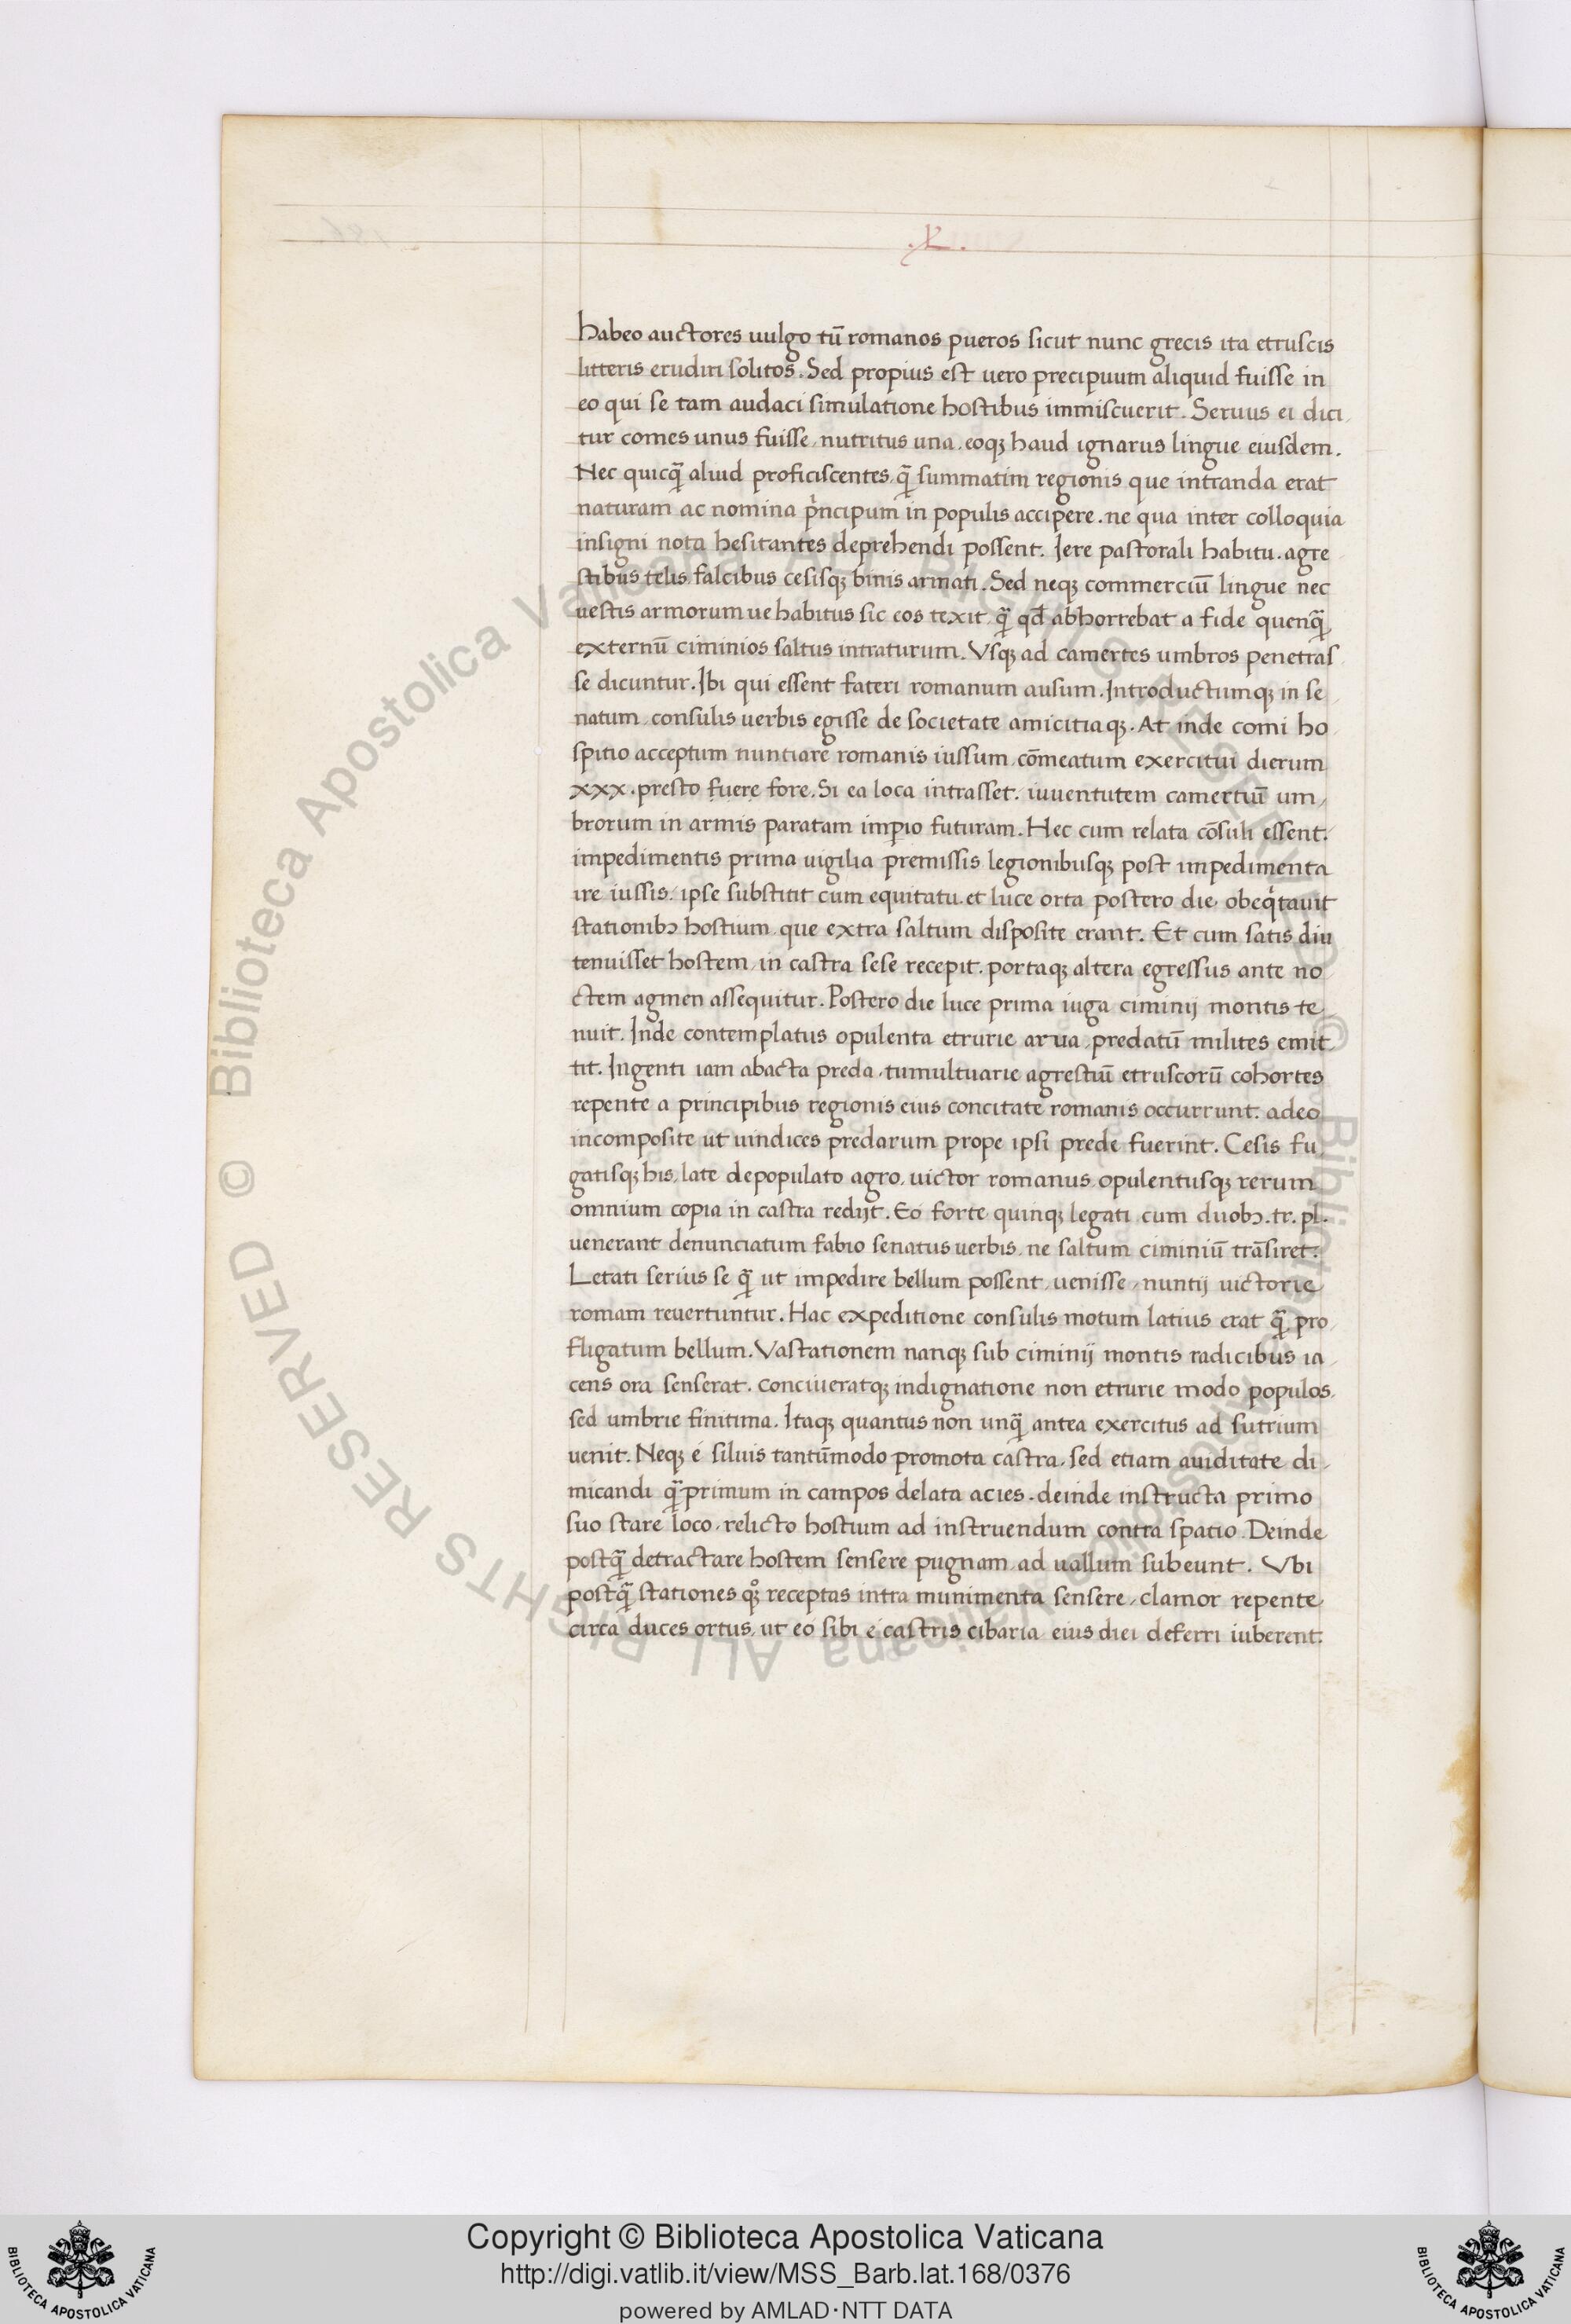 .X.
habeo auctores uulgo tū romanos pueros sicut nunc grecis ita etruscis
litteris erudiri solitos. Sed propius est uero precipuum aliquid fuisse in
eo qui se tam audaci simulatione hostibus immiscuerit. Seruus ei dici
tur comes unus fuisse, nutritus una, eoqꝫ haud ignarus lingue eiusdem.
Nec quicq̄ aliud proficiscentes, q̄ summatim regionis que intranda erat
naturam ac nomina pͥncipum in populis accipere. ne qua inter colloquia
insigni nota hesitantes deprehendi possent. Iere pastorali habitu. agre
stibus telis falcibus cesisqꝫ binis armati. Sed neqꝫ commerciū lingue nec
uestis armorum ue habitus sic eos texit, q̄ qd̄ abhorrebat a fide quenq̄
externū ciminios saltus intraturum. Vsqꝫ ad camertes umbros penetras
se dicuntur. Ibi qui essent fateri romanum ausum. Introductumqꝫ in se
natum, consulis uerbis egisse de societate amicitiaqꝫ. At inde comi ho
spitio acceptum nuntiare romanis iussum, cōmeatum exercitui dierum
xxx. presto fuere fore. Si ea loca intrasset. iuuentutem camertiū um
brorum in armis paratam imꝑio futuram. Hec cum relata cōsuli essent.
impedimentis prima uigilia premissis legionibusqꝫ post impedimenta
ire iussis, ipse substitit cum equitatu. et luce orta postero die, obeqͥtauit
stationibꝫ hostium, que extra saltum disposite erant. Et cum satis diu
tenuisset hostem, in castra sese recepit. portaqꝫ altera egressus ante no
ctem agmen assequitur. Postero die luce prima iuga ciminij montis te
nuit. Inde contemplatus opulenta etrurie arua, predatū milites emit
tit. Ingenti iam abacta preda, tumultuarie agrestiū etruscorū cohortes
repente a principibus regionis eius concitate romanis occurrunt. adeo
incomposite ut uindices predarum prope ipsi prede fuerint. Cesis fu
gatisqꝫ his, late depopulato agro, uictor romanus, opulentusqꝫ rerum
omnium copia in castra redijt. Eo forte quinqꝫ legati cum duobꝫ. tr. pl.
uenerant denunciatum fabio senatus uerbis, ne saltum ciminiū trāsiret.
Letati serius se q̄ ut impedire bellum possent, uenisse, nuntij uictorie
romam reuertuntur. Hac expeditione consulis motum latius erat q̄ pro
fligatum bellum. Vastationem nanqꝫ sub ciminij montis radicibus ia
cens ora senserat. conciueratqꝫ indignatione non etrurie modo populos,
sed umbrie finitima. Itaqꝫ quantus non unq̄ antea exercitus ad sutrium
uenit. Neqꝫ é siluis tantūmodo promota castra, sed etiam auiditate di
micandi q̄primum in campos delata acies. deinde instructa primo
suo stare loco, relicto hostium ad instruendum contra spatio. Deinde
postq̄ detractare hostem sensere pugnam, ad uallum subeunt. Vbi
postq̄ stationes qͦꝫ receptas intra munimenta sensere, clamor repente
circa duces ortus, ut eó sibi é castris cibaria eius diei deferri iuberent.
© Biblioteca Apostolica Vaticana ALL RIGHTS RESERVED
© Biblioteca Apostolica Vaticana ALL RIGHTS RESERVED
Copyright © Biblioteca Apostolica Vaticana
http://digi.vatlib.it/view/MSS_Barb.lat.168/0376
powered by AMLAD·NTT DATA
BIBLIOTECA APOSTOLICA VATICANA
BIBLIOTECA APOSTOLICA VATICANA